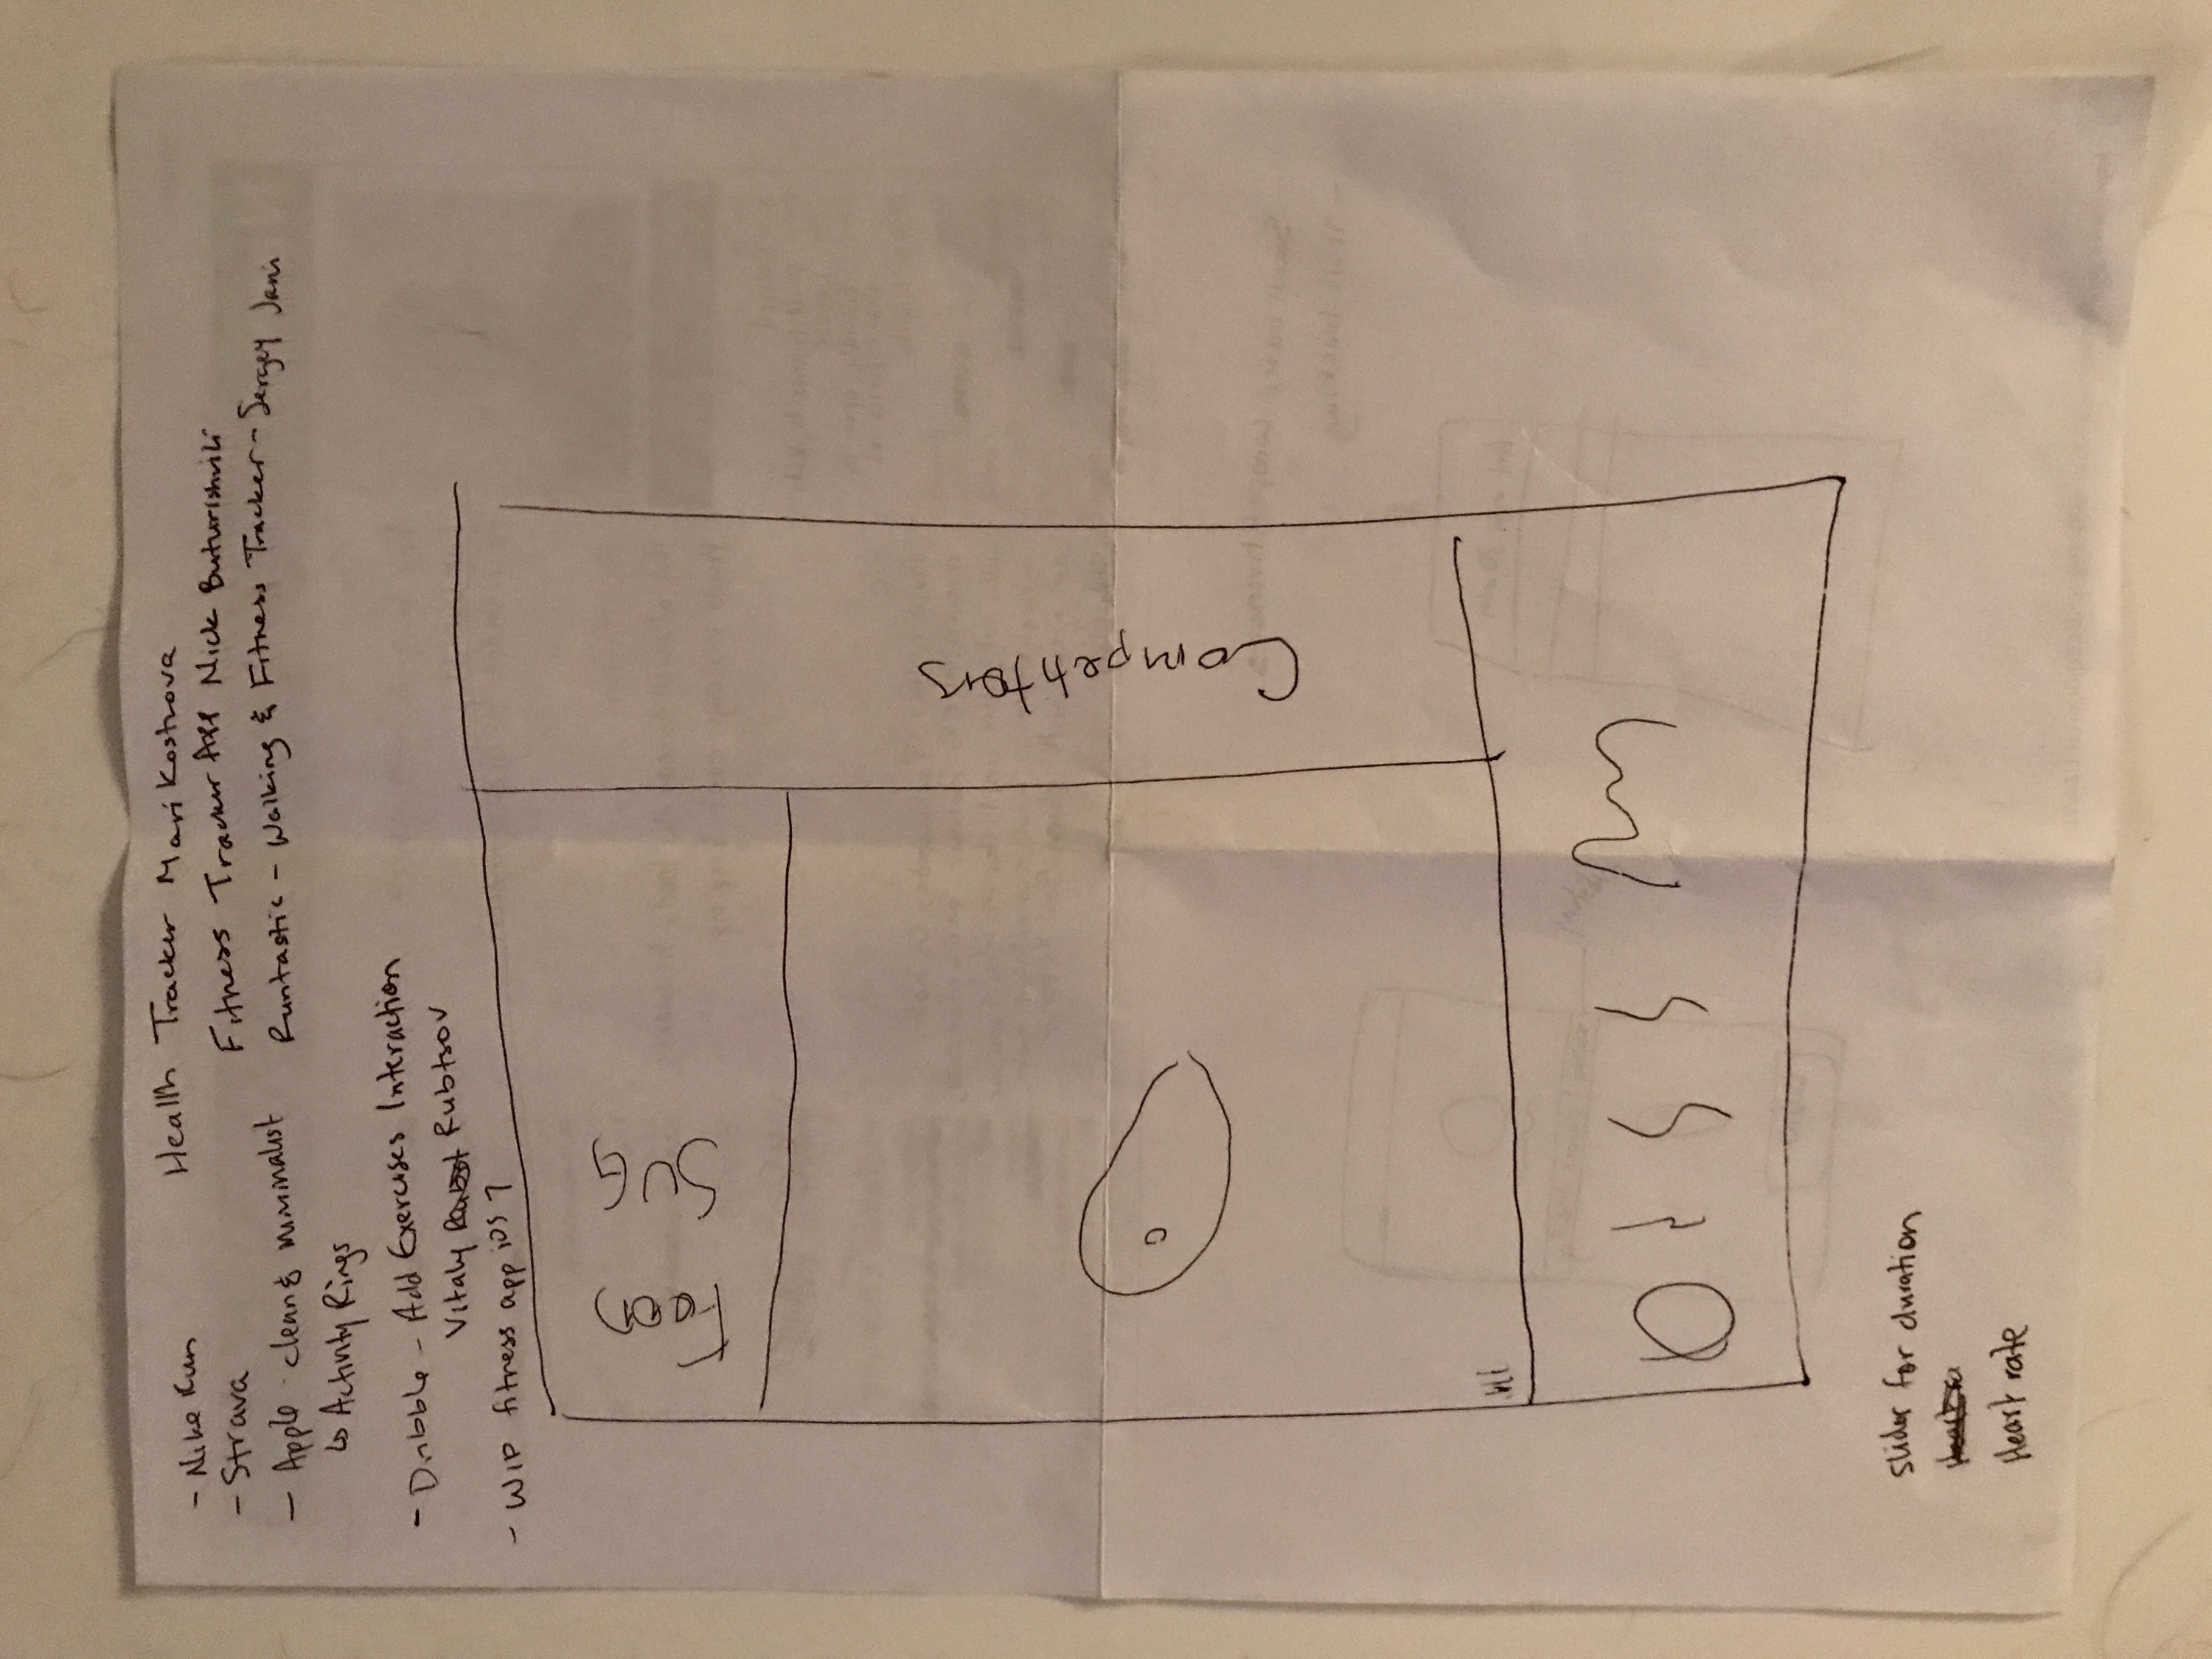 - Nike Run
- Strava
- Apple - clean & minimalist
↳ Activity Rings
- Dribble - Add Exercises Interaction
Vitaly Rubtsov
- WIP fitness app iOS 7
Health Tracker Mari Kostrova
Fitness Tracker App Nick Buturishvili
Runtastic - Walking & Fitness Tracker - Sergey
Competitors
Slider for duration
Heart rate